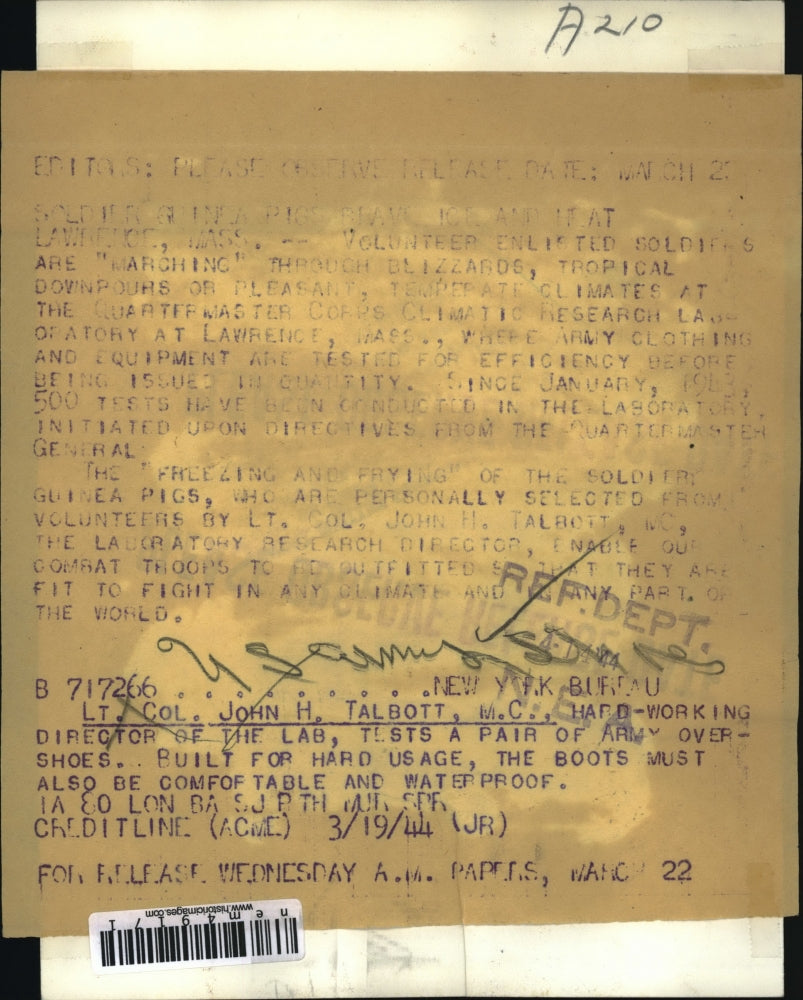 A210
EDITORS: PLEASE OBSERVE RELEASE DATE: MARCH 2
SOLDIER GUINEA PIGS BRAVE ICE AND HEAT
LAWRENCE, MASS. -- VOLUNTEER ENLISTED SOLDIERS
ARE "MARCHING" THROUGH BLIZZARDS, TROPICAL
DOWNPOURS OR PLEASANT, TEMPERATE CLIMATES AT
THE QUARTERMASTER CORPS CLIMATIC RESEARCH LAB-
ORATORY AT LAWRENCE, MASS., WHERE ARMY CLOTHING
AND EQUIPMENT ARE TESTED FOR EFFICIENCY BEFORE
BEING ISSUED IN QUANTITY. SINCE JANUARY, 1943,
500 TESTS HAVE BEEN CONDUCTED IN THE LABORATORY,
INITIATED UPON DIRECTIVES FROM THE QUARTERMASTER
GENERAL.
THE "FREEZING AND FRYING" OF THE SOLDIER
GUINEA PIGS, WHO ARE PERSONALLY SELECTED FROM
VOLUNTEERS BY LT. COL. JOHN H. TALBOTT, MC,
THE LABORATORY RESEARCH DIRECTOR, ENABLE OUR
COMBAT TROOPS TO BE OUTFITTED SO THAT THEY ARE
FIT TO FIGHT IN ANY CLIMATE AND IN ANY PART OF
THE WORLD.
REF. DEPT.
N.E.A.
U S Army
B 717266 . . . . . . . . . . NEW YORK BUREAU
LT. COL. JOHN H. TALBOTT, M.C., HARD-WORKING
DIRECTOR OF THE LAB, TESTS A PAIR OF ARMY OVER-
SHOES. BUILT FOR HARD USAGE, THE BOOTS MUST
ALSO BE COMFORTABLE AND WATERPROOF.
1A 80 LON BA SJ P TH MUR SPR
CREDITLINE (ACME) 3/19/44 (JR)
FOR RELEASE WEDNESDAY A.M. PAPERS, MARCH 22
www.historicimages.com
nem49171